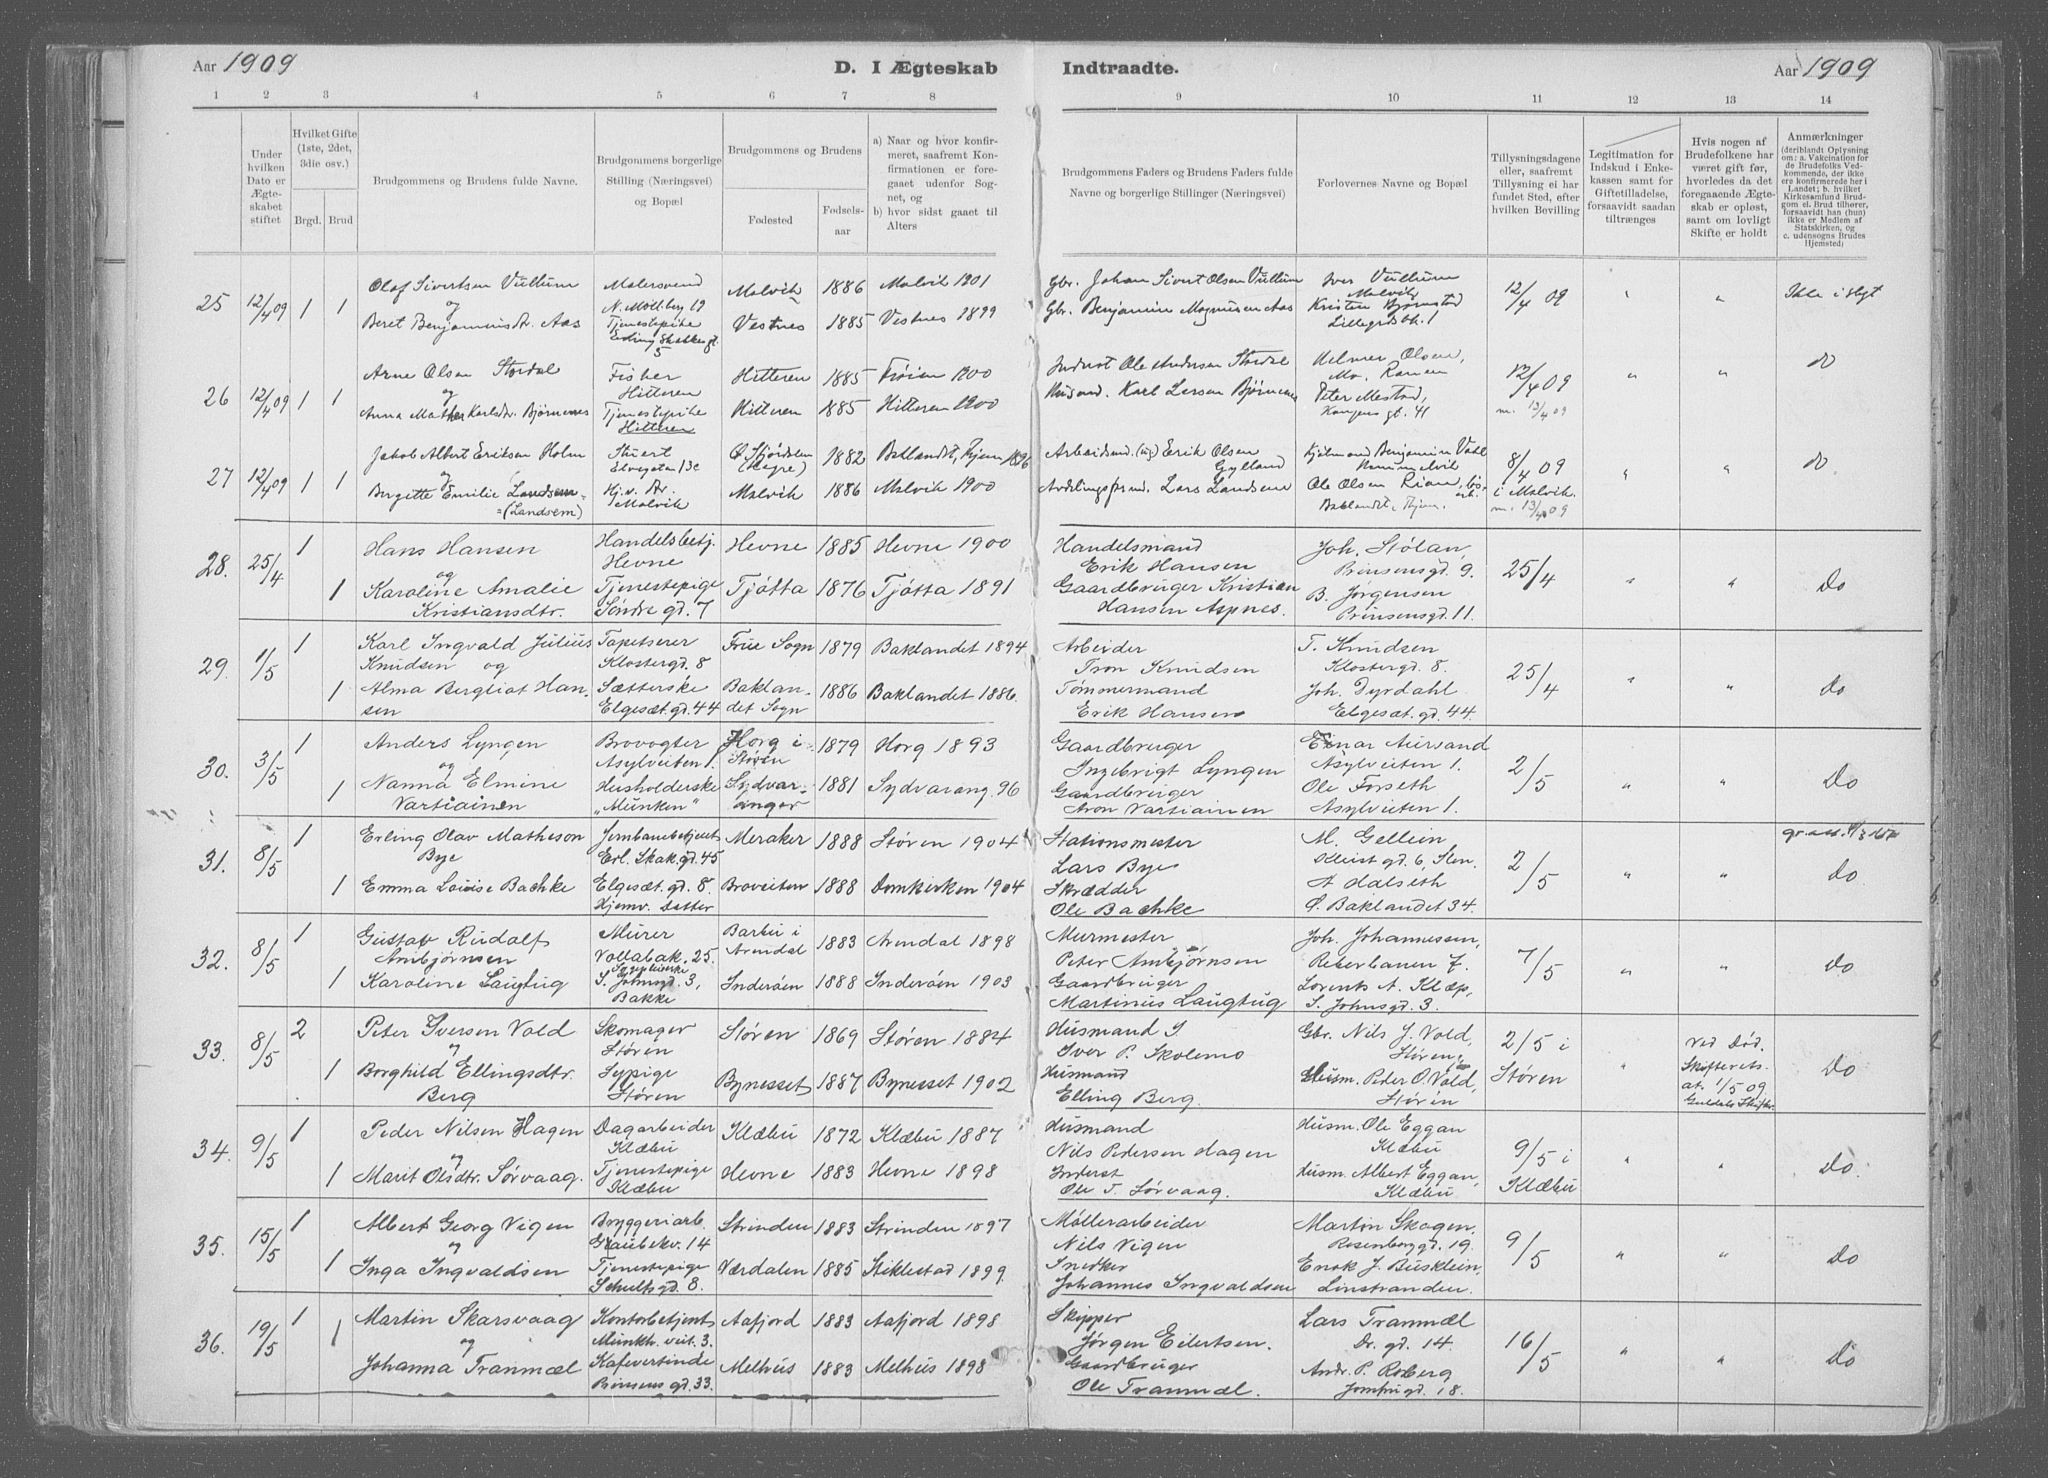 Aar 1909
D. I Ægteskab
Indtraadte.
Aar 1909
1 2 3 4 5 6 7 8 9 10 11 12 13 14
Under hvilken Dato er Ægteskabet stiftet
Hvilket Gifte (1ste, 2det, 3die osv.)
Brgd. Brud
Brudgommens og Brudens fulde Navne.
Brudgommens borgerlige Stilling (Næringsvei) og Bopæl
Brudgommens og Brudens
Fødested
Fødselsaar
a) Naar og hvor konfirmeret, saafremt Konfirmationen er foregaaet udenfor Sognet, og
b) hvor sidst gaaet til Alters
Brudgommens Faders og Brudens Faders fulde Navne og borgerlige Stillinger (Næringsvei)
Forlovernes Navne og Bopæl
Tillysningsdagene eller, saafremt Tillysning ei har fundet Sted, efter hvilken Bevilling
Legitimation for Indskud i Enkekassen samt for Giftetilladelse, forsaavidt saadan tiltrænges
Hvis nogen af Brudefolkene har været gift før, hvorledes da det foregaaende Ægteskab er opløst, samt om lovligt Skifte er holdt
Anmærkninger (deriblandt Oplysning om: a. Vakcination for de Brudefolks Vedkommende, der ikke ere konfirmerede her i Landet; b. hvilket Kirkesamfund Brudgom el. Brud tilhører, forsaavidt han (hun) ikke er Medlem af Statskirken, og c. udensogns Brudes Hjemsted)
25 12/4 09 1 Olaf Sivertsen Vullum Malersvend N. Möllberg 19 Malvik 1886 Malvik 1901 Gbr. Johan Sivert Olsen Vullum Iver Vullum Malvik 12/4 09 " " Ikke i slegt
og
1 Beret Benjaminsdr. Aas Tjenestepike Erling Skakkes gt. 5 Vestnes 1885 Vestnes 1899 Gbr. Benjamin Magnusen Aas Kristen Bjørnstad Lillegrdsbk. 1
26 12/4 09 1 Arne Olsen Stordal Fisker Hitteren Hitteren 1885 Frøien 1900 Inderst Ole Andersen Stordal Helmer Olsen, Mo, Ranen 12/4 09 " " do
og
1 Anna Mathea Karlsdr. Bjørnenes Tjenestepike Hitteren Hitteren 1885 Hitteren 1900 Husmd. Karl Larsen Bjørnenes Peter Mestad, Kongens gt. 41 m. 13/4 09
27 12/4 09 1 Jakob Albert Eriksen Holm Stuert Elvegaten 13c Ø. Stjørdalen (Hegre) 1882 Baklandet, Thjem 1896 Arbeidsmd. (ug) Erik Olsen Gylland Hjelmand Benjamin Vahl Hommelvik 8/4 09 " " do
og
1 Bergitte Emilie Landsem = (Landsem) Hj.v. Dr. Malvik Malvik 1886 Malvik 1900 Avdelingsformd. Lars Landsem Ole Olsen Rian, løsarb. Baklandet, Thjem. i Malvik. m. 13/4 09
28. 25/4 1 Hans Hansen Handelsbetj. Hevne Hevne 1885 Hevne 1900 Handelsmand Erik Hansen Joh. Stölan, Prinsensgd. 9. 25/4 " " Do
og
1 Karoline Amalie Kristiansdtr. Tjenestepige Söndre gd. 7 Tjötta 1876 Tjötta 1891 Gaardbruger Kristian Hansen Aspnes. B. Jørgensen Prinsensgd. 11.
29. 1/5 1 Karl Ingvald Julius Knudsen og Tapetserer Klostergd. 8 Frue Sogn 1879 Baklandet 1894 Arbeider Tron Knudsen T. Knudsen Klostergd. 8. 25/4 " " Do
1 Alma Bergliot Hansen Sætterske Elgesæt. gd. 44 Baklandet Sogn 1886 Baklandet 1886. Tømmermand Erik Hansen Joh. Dyrdahl Elgesæt. gd. 44.
30. 3/5 1 Anders Lyngen Brovogter Asylveiten 1. Horg i Støren 1879 Horg 1893 Gaardbruger Ingebrigt Lyngen Einar Aursand Asylveiten 1. 2/5 " " Do
og
1 Nanna Elmine Vartiainen Husholderske "Munken" Sydvaranger 1881 Sydvarang. 96 Gaardbruger Aron Vartiainen Ole Forseth Asylveiten 1.
31. 8/5 1 Erling Olav Matheson Bye Jernbanebetjent Erl. Skak. gd. 45 Meraker 1888 Støren 1904 Stationsmester Lars Bye M. Gellein Kleist gd. 6, Slen. 2/5 " " Do
1 Emma Louise Bachke Elgesæt. gd. 8. Hjemv. Datter Broveiten 1888 Domkirken 1904 Skrædder Ole Bachke A Halseth Ø. Baklandet 34.
32. 8/5 1 Gustav Rudolf Ambjørnsen Murer Vollabak. 25. Barbu i Arendal 1883 Arendal 1898 Murmester Peter Ambjørnsen Joh. Johannessen, Reberbanen 7. 7/5 " " Do
1 Karoline Laugtug S. Johnsgd. 3, Bakke Inderøen 1888 Inderøen 1903 Gaardbruger Martinus Laugtug Lorents A. Klæp, S. Johnsgd. 3.
33. 8/5 2 Peter Iversen Vold Skomager Støren Støren 1869 Støren 1884 Husmand S. Iver P. Skolemo Gbr. Nils J. Vold, Støren, 2/5 i Støren " Ved Død. Skifterets. at. 1/5 09 Guldals Skifter. Do
og
1 Borghild Ellingsdtr. Berg Sypige Støren Bynesset 1887 Bynesset 1902 Husmand Elling Berg. Husm. Peder O. Vold, Støren
34. 9/5 1 Peder Nilsen Hagen Dagarbeider Klæbu Klæbu 1872 Klæbu 1887 Husmand Nils Pedersen Hagen Husm. Ole Eggan Klæbu 9/5 i Klæbu " " Do
og
1 Marit Olsdtr. Sørvaag. Tjenestepige Klæbu Hevne 1883 Hevne 1898 Inderst Ole T. Sørvaag. Husm. Albert Eggan, Klæbu
35. 15/5 1 Albert Georg Vigen Bryggeriarb. Graubekv. 14 Strinden 1883 Strinden 1897 Møllerarbeider Nils Vigen Martin Skogen, Rosenborggd. 19. 9/5 " " Do
og
1 Inga Ingvaldsen Tjenestepige Schultsgd. 8. Værdalen 1885 Stiklestad 1899. Snedker Johannes Ingvaldsen Enok J. Busklein, Linstranden.
36. 19/5 1 Martin Skarsvaag Kontorbetjent Munkh. veit. 3. Aafjord 1883 Aafjord 1898 Skipper Jørgen Eilertsen. Lars Tranmæl Dr. gd. 14. 16/5 " " Do
og
1 Johanna Tranmæl Kafévertinde Prinsens gd. 33. Melhus 1883 Melhus 1898 Gaardbruger Ole Tranmæl. Andr. P. Rosberg Jomfrugd. 18.